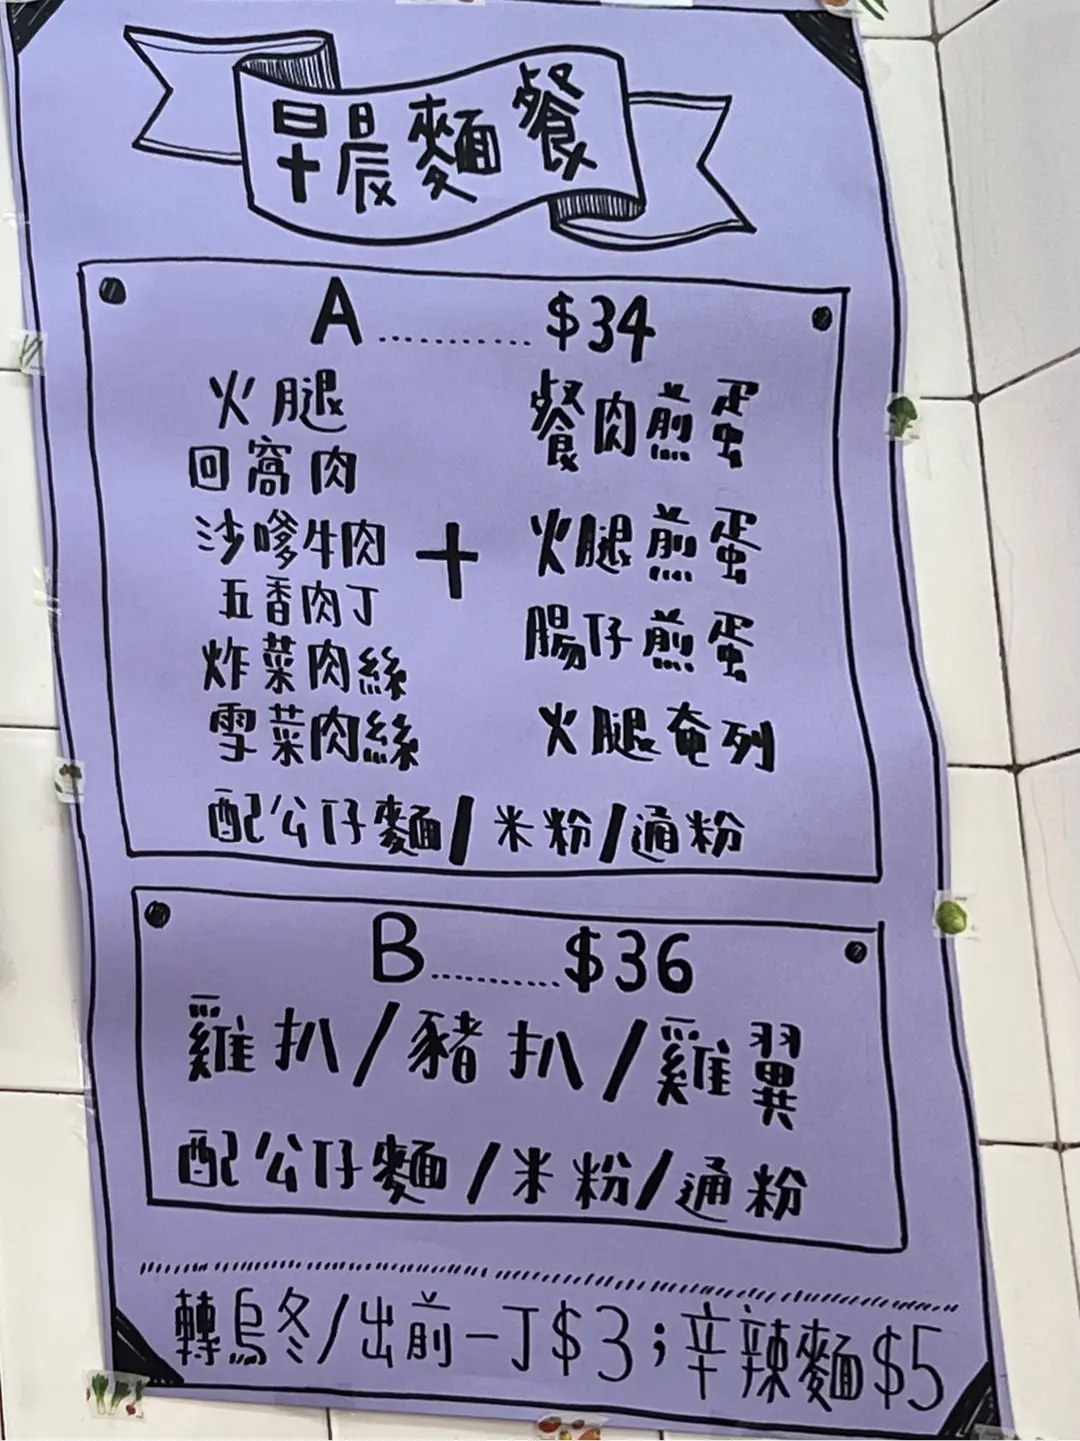 早晨麵餐
A............$34
火腿
回窩肉
沙嗲牛肉
五香肉丁
炸菜肉絲
雪菜肉絲
+
餐肉煎蛋
火腿煎蛋
腸仔煎蛋
火腿奄列
配公仔麵/米粉/通粉
B...........$36
雞扒/豬扒/雞翼
配公仔麵/米粉/通粉
轉烏冬/出前一丁$3;辛辣麵$5